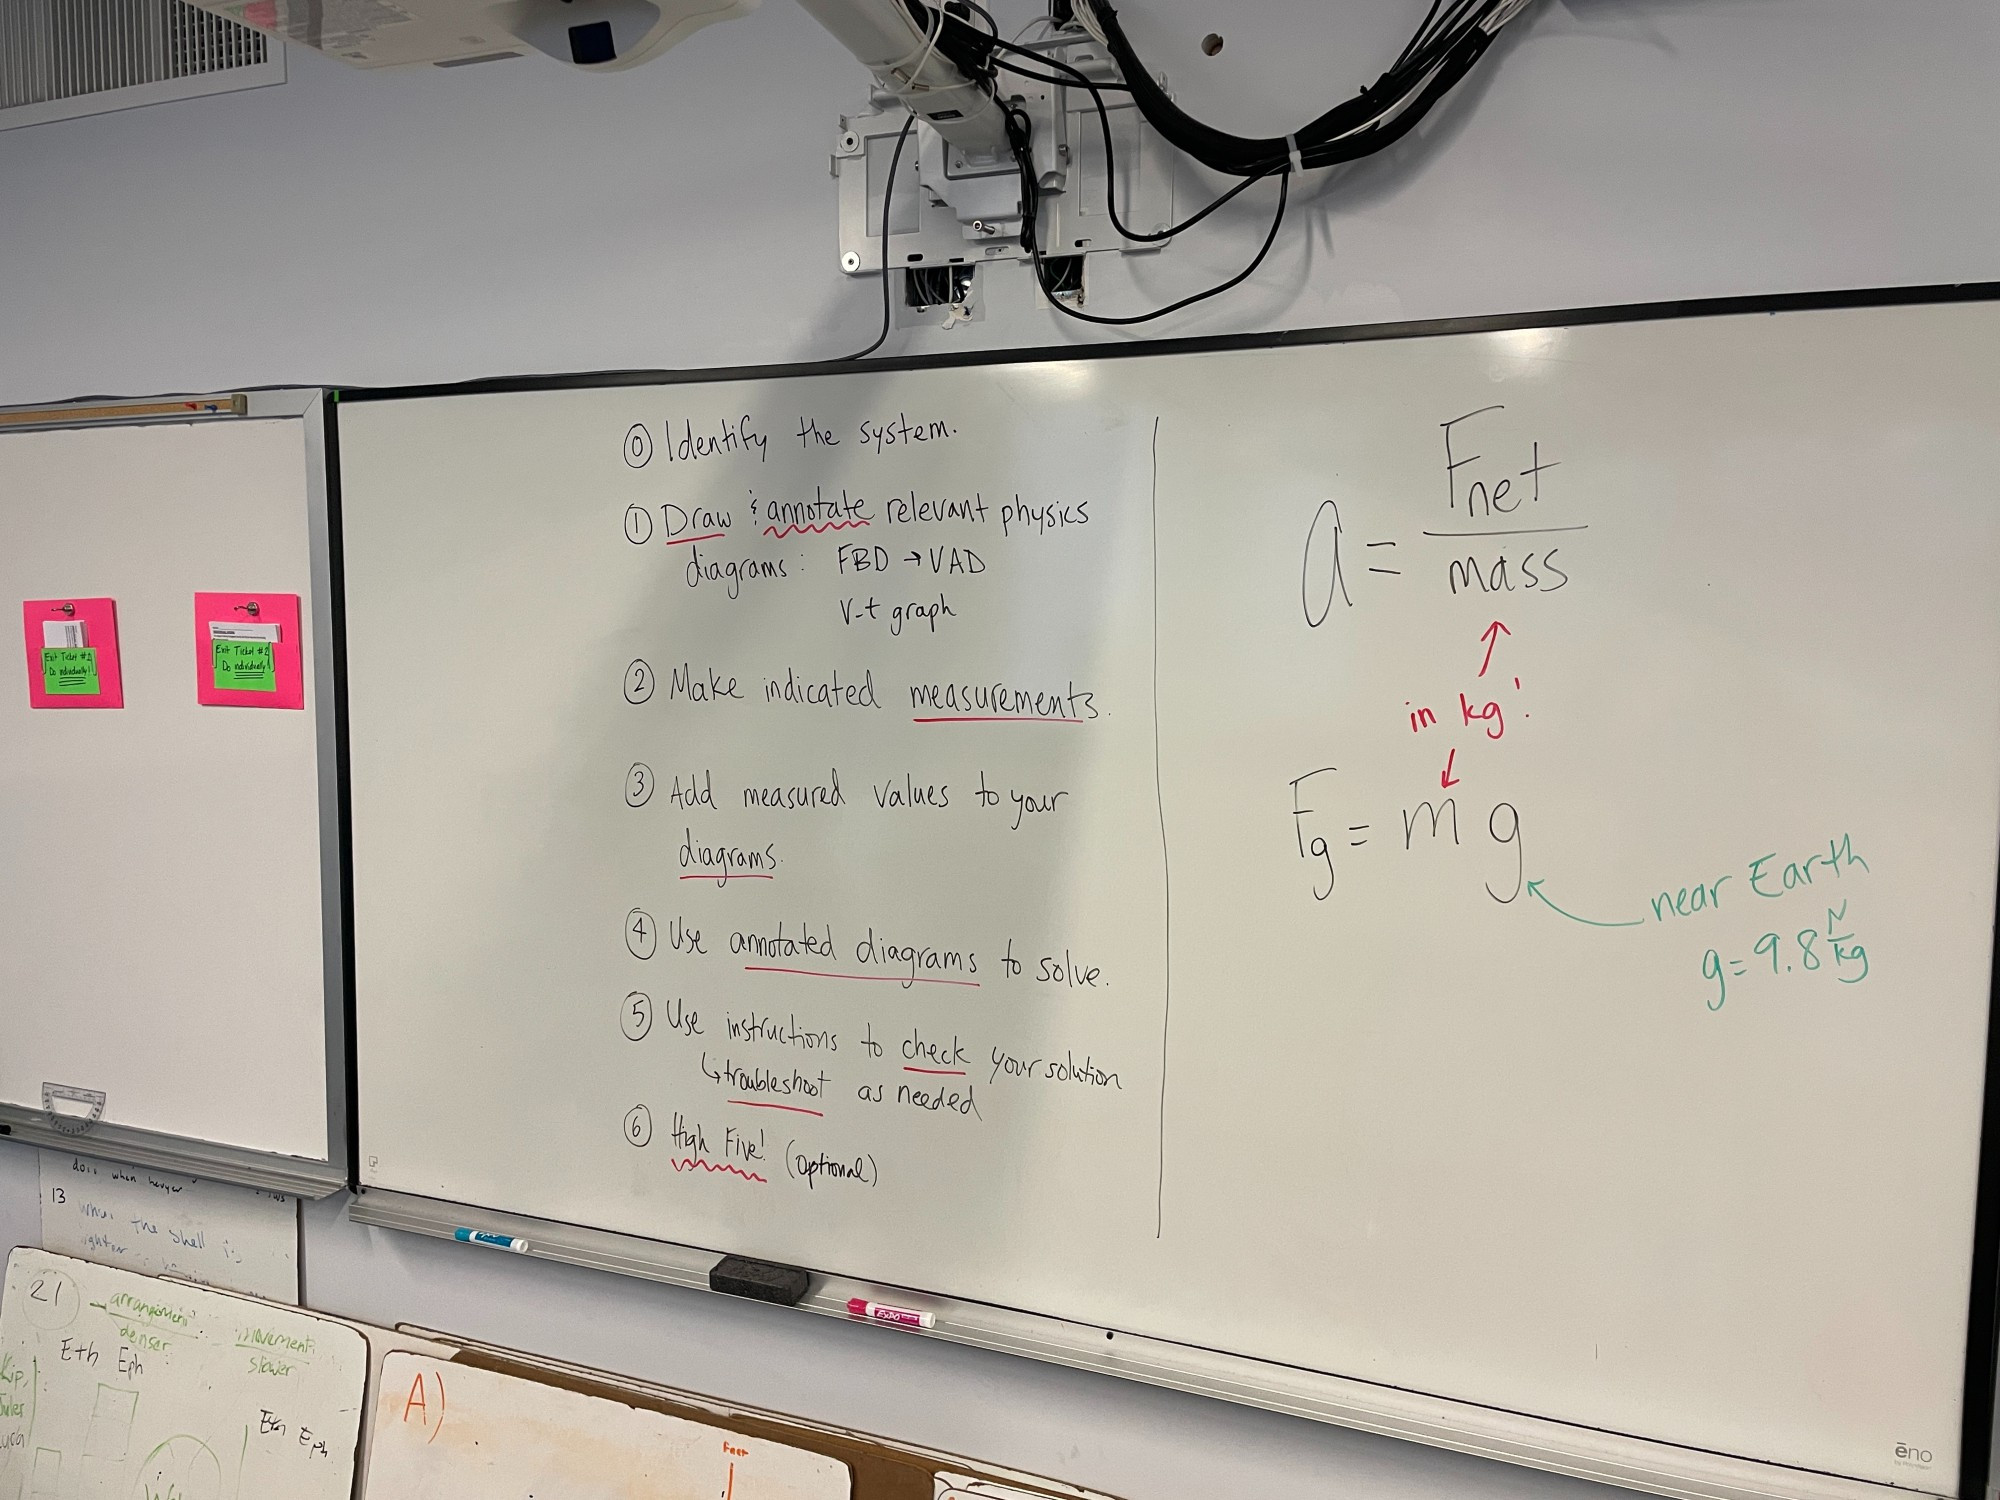 ⓪ Identify the system.
① Draw & annotate relevant physics
diagrams: FBD → VAD
v-t graph
② Make indicated measurements.
③ Add measured values to your
diagrams.
④ Use annotated diagrams to solve.
⑤ Use instructions to check your solution
↳ troubleshoot as needed
⑥ High Five! (optional)
a = Fnet
mass
↑
in kg!
↓
Fg = m g
near Earth
g = 9.8 N
kg
Exit Ticket #2
Do individually!
Exit Ticket #2
Do individually!
13
the shell is
21
arrangement
denser
movement
slower
Eth Eph
Eth Eph
A)
EXPO
ēno